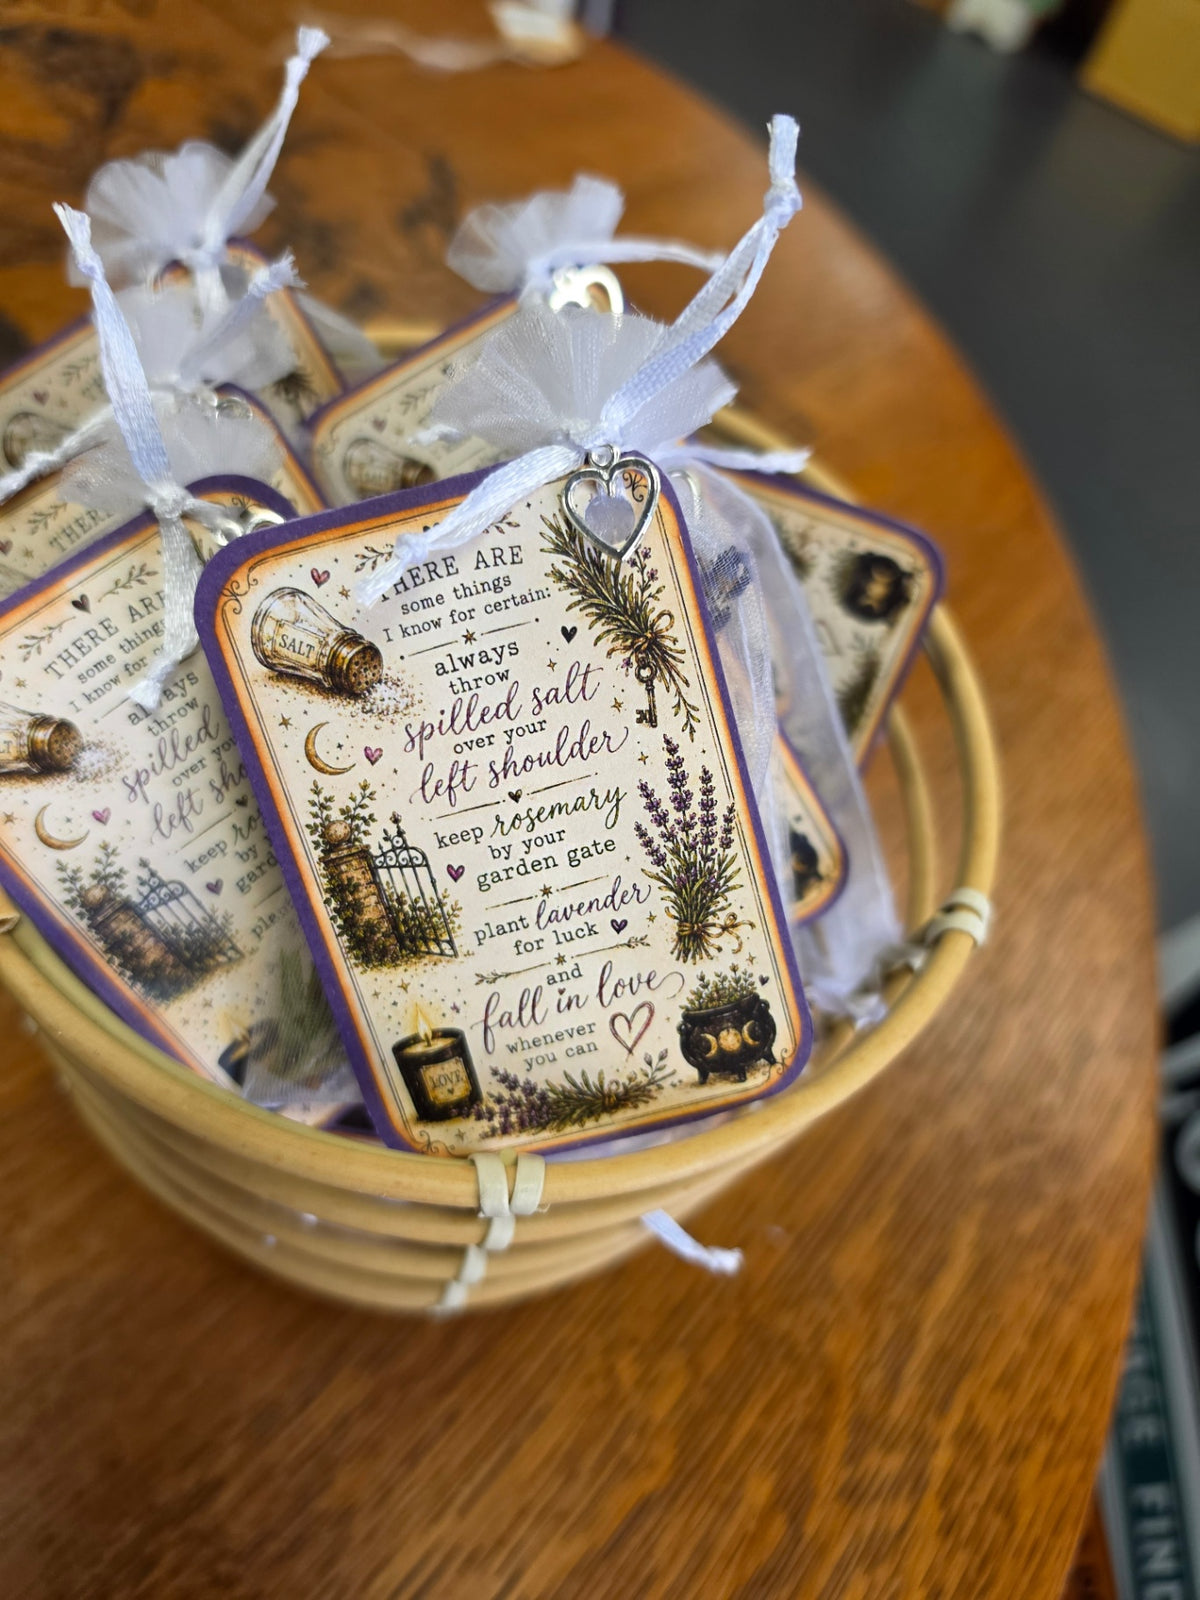 THERE ARE
some things
I know for certain:
always
throw
spilled salt
over your
left shoulder
keep rosemary
by your
garden gate
plant lavender
for luck
and
fall in love
whenever
you can
SALT
LOVE
THERE ARE
some things
I know for
always
throw
spilled
over
left
keep
by
THERE